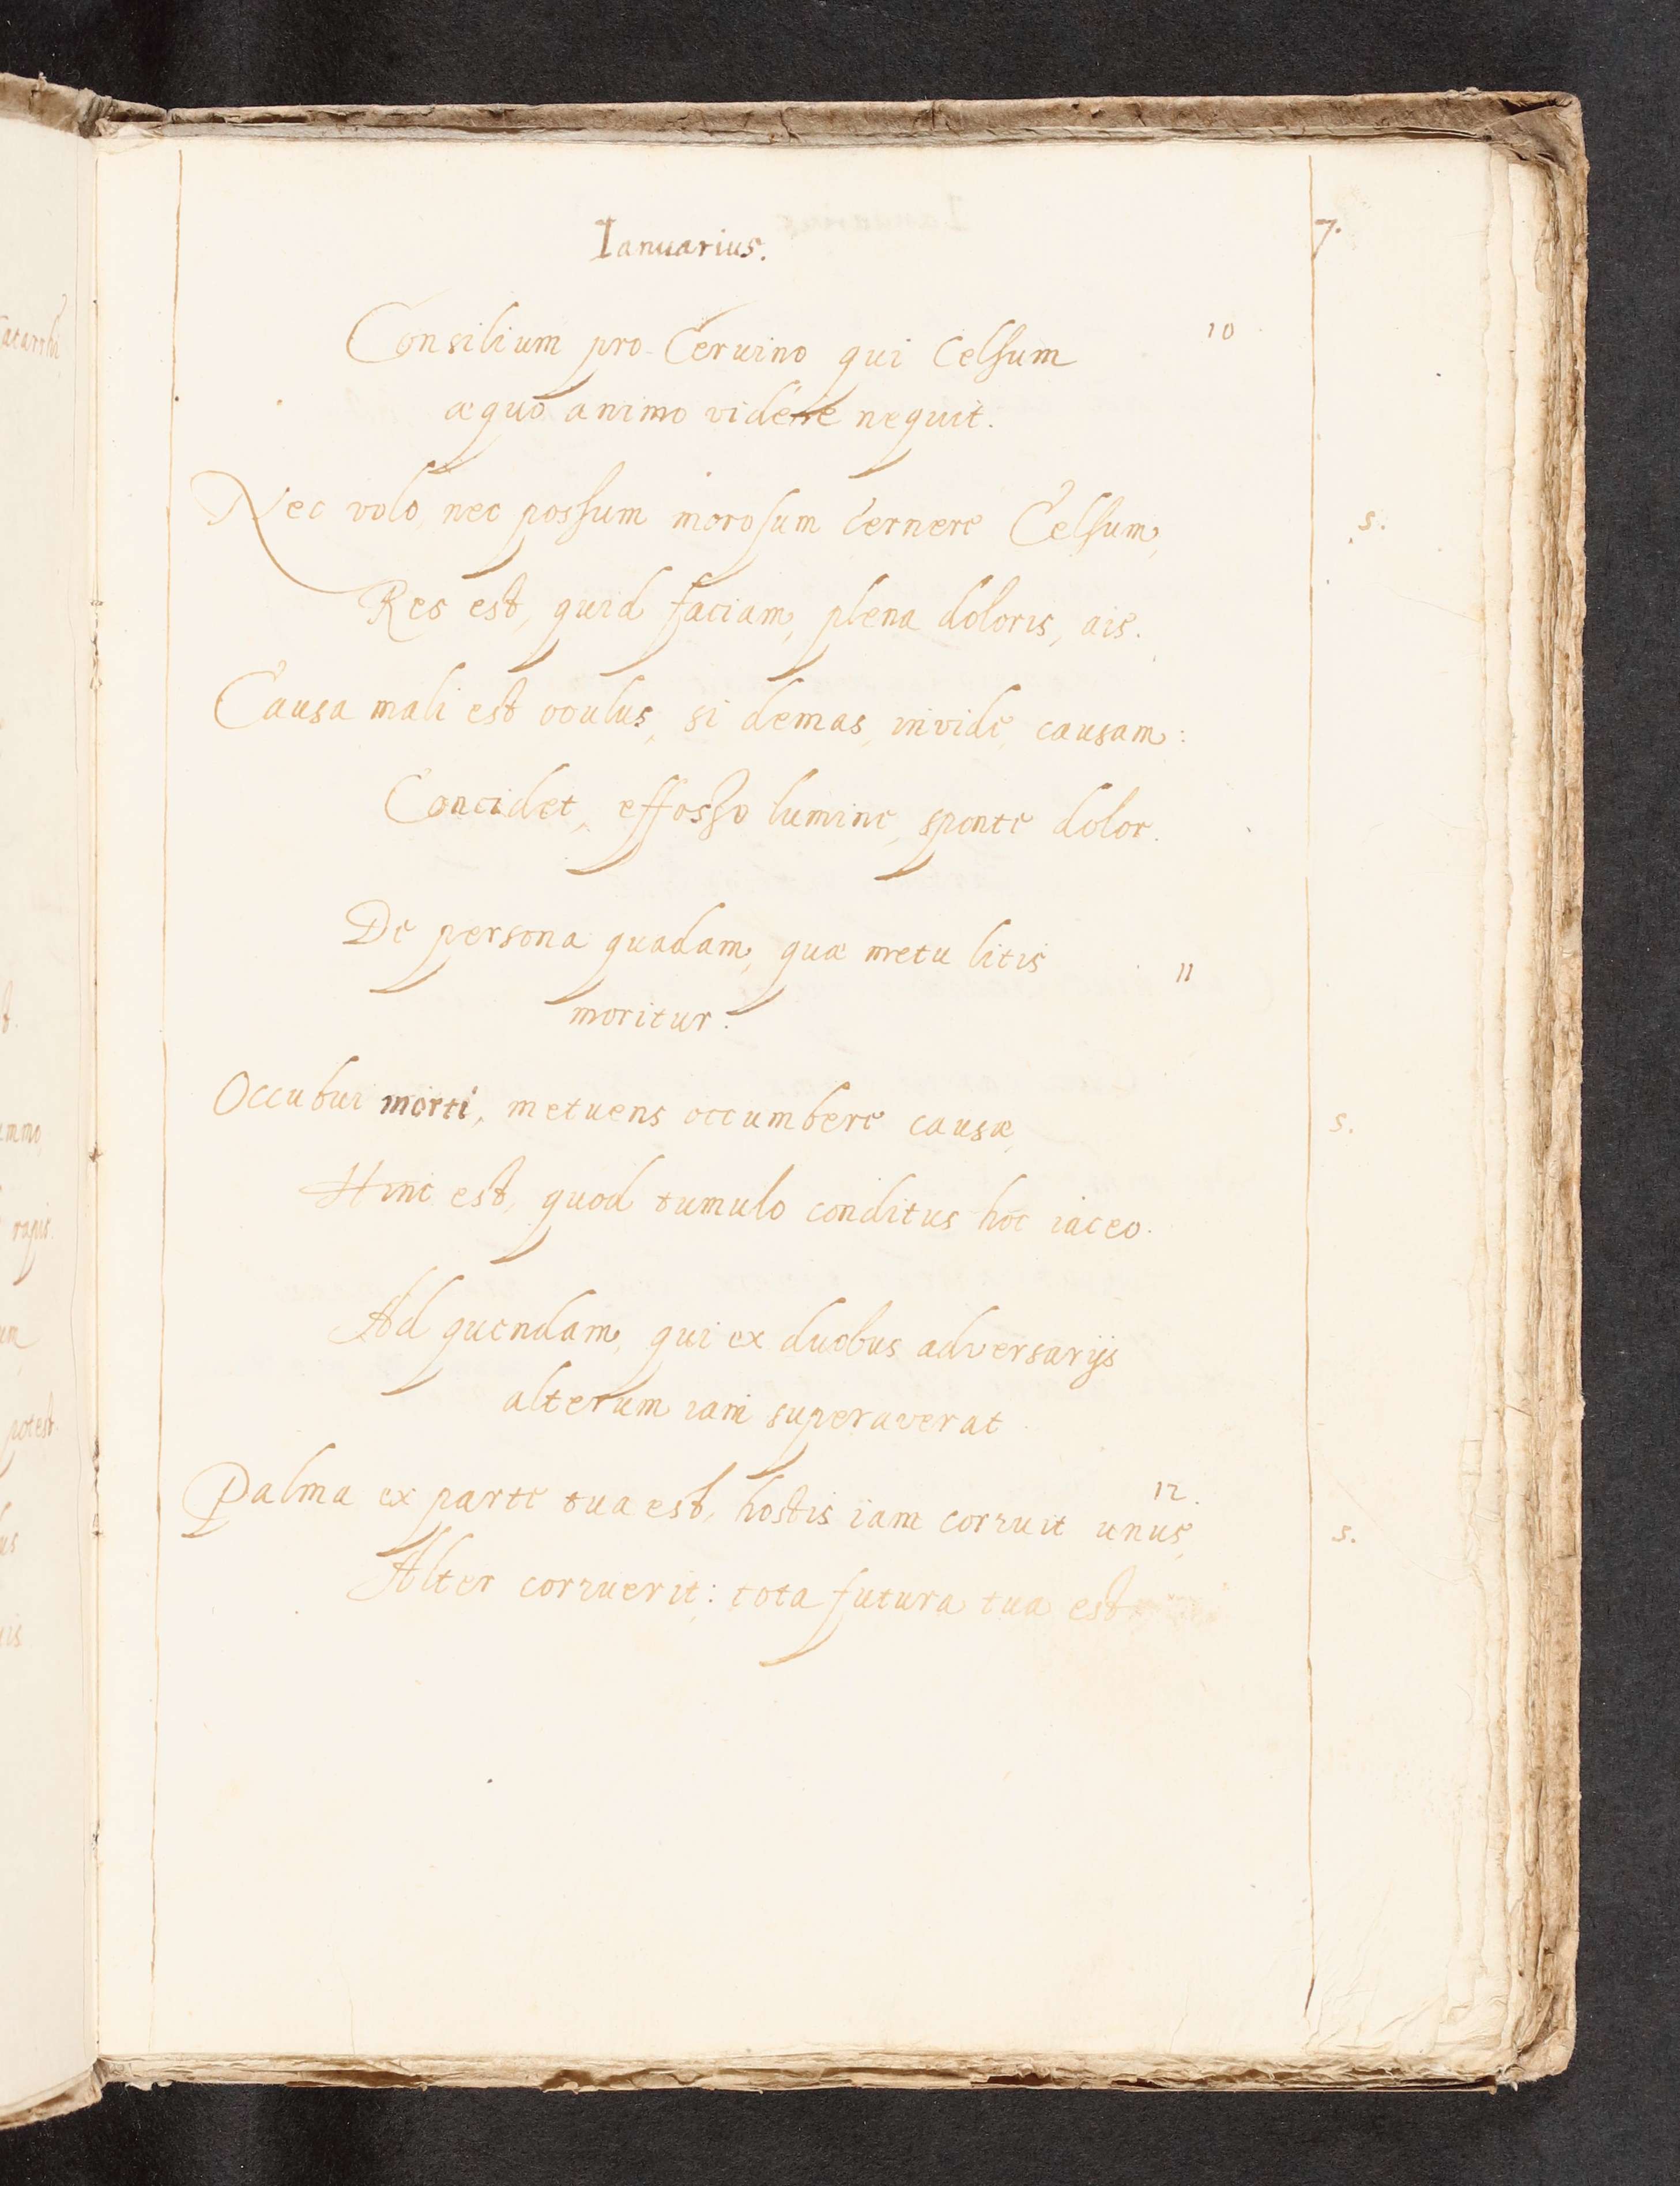 Ianuarius. 7.
Consilium pro Cervino qui Celsum 10
æquo animo videre nequit.
Nec volo, nec possum morosum cernere Celsum, s.
Res est, quid faciam, plena doloris, ais.
Causa mali est oculus, si demas, invide, causam:
Concidet, effosso lumine, sponte dolor.
De persona quadam, quæ metu litis 11
moritur.
Occubui morti, metuens occumbere causæ, s.
Hinc est, quod tumulo conditus hoc iaceo.
Ad quendam, qui ex duobus adversarijs
alterum iam superaverat
12.
Palma ex parte tua est, hostis iam corruit unus, s.
Alter corruerit: tota futura tua est